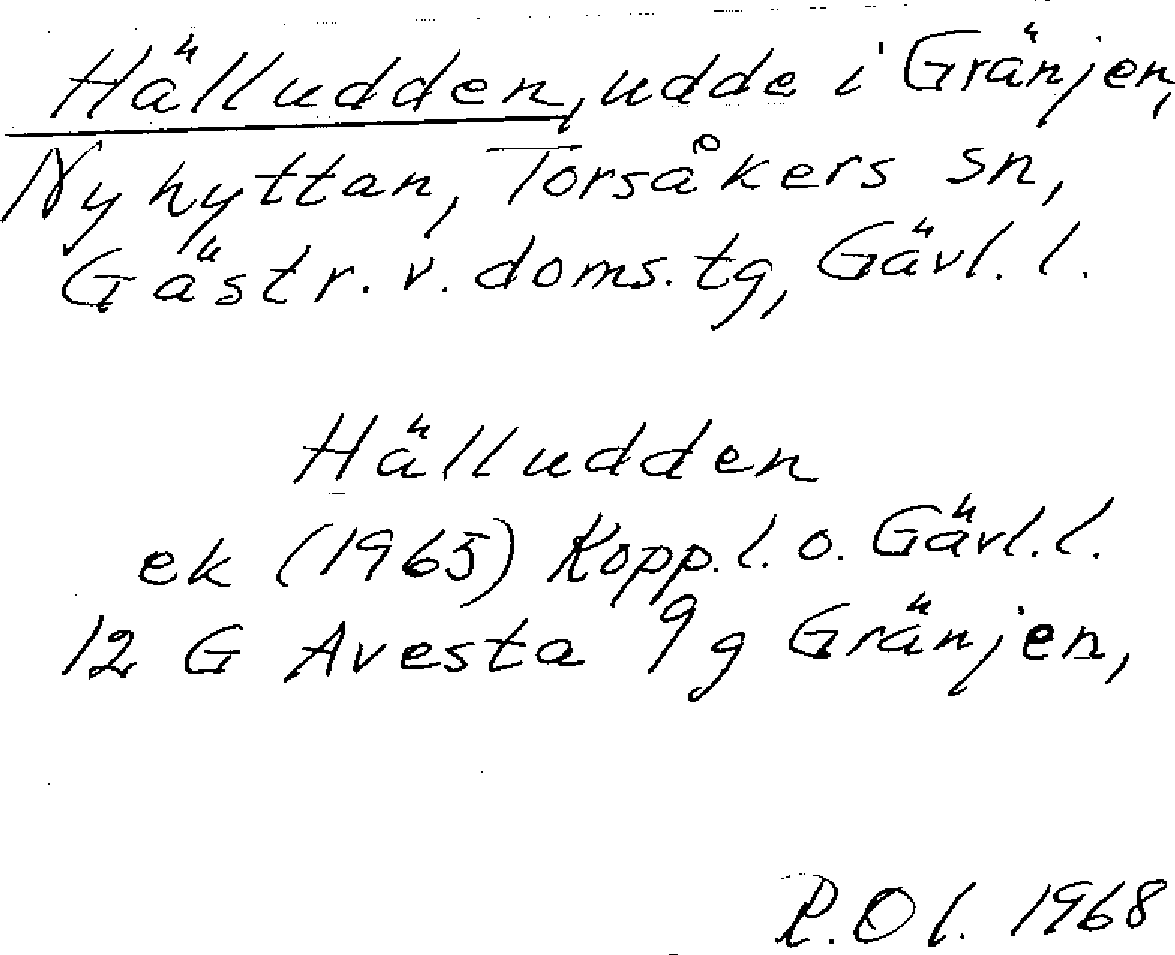 Hälludden, udde i Gränjen,
Nyhyttan, Torsåkers sn,
Gästr. v. doms. tg, Gävl. l.
Hälludden
ek (1965) Kopp. l. o. Gävl. l.
12 G Avesta 9 g Gränjen,
R. Ol. 1968